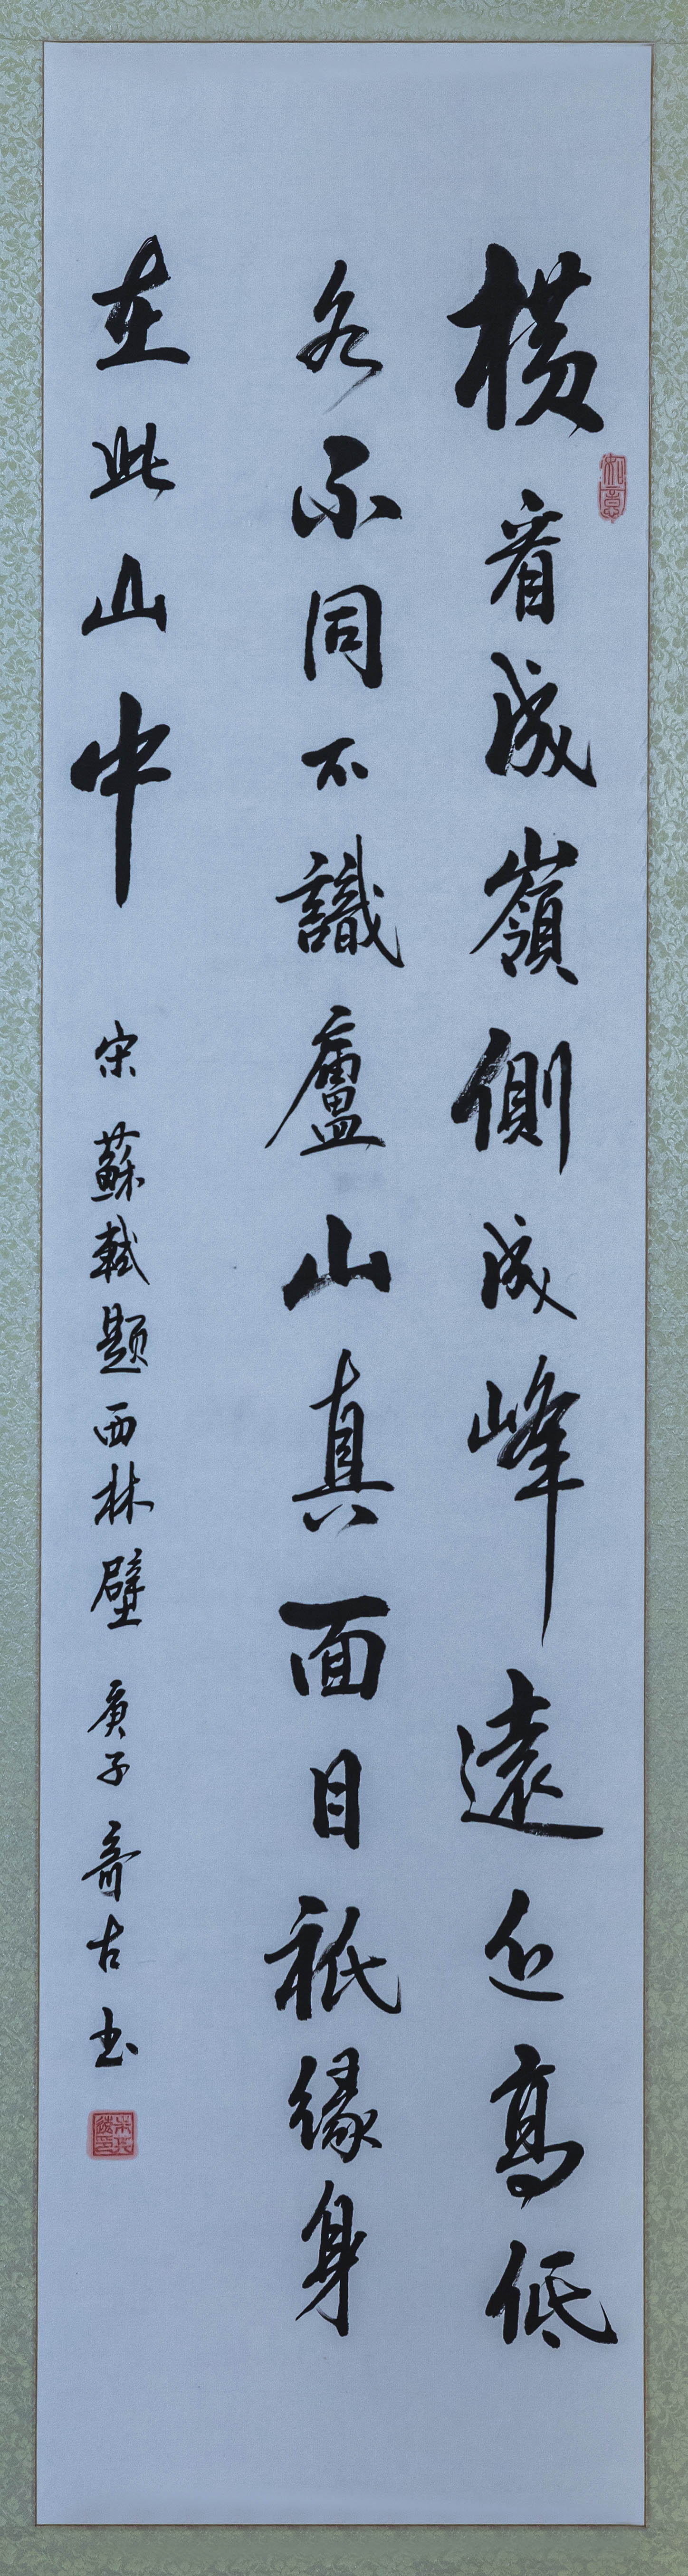 橫看成嶺側成峰遠近高低
各不同不識廬山真面目祇緣身
在此山中
宋蘇軾題西林壁 庚子奇古书
如意